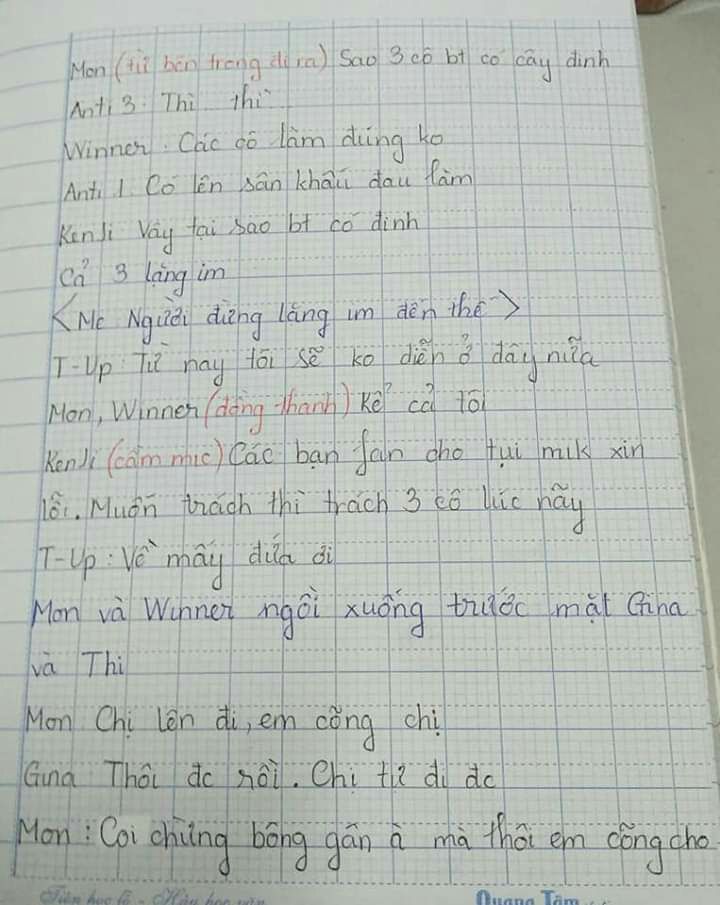 Mon (từ bên trong đi ra) Sao 3 cô bt có cây đinh
Anti 3: Thì thì
Winner: Các cô làm đúng ko
Anti 1 Cô lên sân khấu đau lắm
Kenji Vậy tại sao bt có đinh
Cả 3 lặng im
<Mc Người đừng lặng im đến thế>
T-Up: Từ nay tôi sẽ ko diễn ở đây nữa
Mon, Winner (đồng thanh) Kể cả tôi
Kenji (cầm mic) Các bạn fan cho tụi mik xin
lỗi. Muốn trách thì trách 3 cô lúc nãy
T-Up: Về mấy đứa ơi
Mon và Winner ngồi xuống trước mặt Gina
và Thi
Mon Chị lên đi, em cõng chị
Gina Thôi đc rồi. Chị tự đi đc
Mon: Coi chừng bông gân à mà thôi em cõng cho
Tiên học lễ - Hậu học văn Quang Tâm